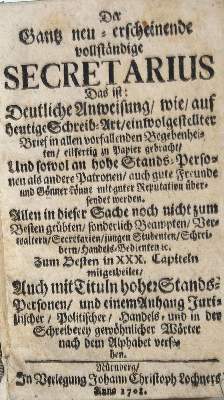 Der
Gantz neu-erscheinende
vollständige
SECRETARIUS
Das ist:
Deutliche Anweisung/ wie/ auf
heutige Schreib-Art/ ein wolgestellter
Brief in allen vorfallenden Begebenhei-
ten/ eilfertig in Papier gebracht/
Und sowol an hohe Stands-Perso-
nen als andere Patronen/ auch gute Freunde
und Gönner könne mit guter Reputation über-
sendet werden.
Allen in dieser Sache noch nicht zum
Besten geübten/ sonderlich Beampten/ Ver-
waltern/ Secretarien/ jungen Studenten/ Schrei-
bern/ Handels-Bedienten ꝛc.
Zum Besten in XXX. Capiteln
mitgetheilet/
Auch mit Tituln hoher Stands-
Personen/ und einem Anhang Juri-
stischer/ Politischer/ Handels- und in der
Schreiberey gewöhnlicher Wörter
nach dem Alphabet verse-
hen.
Nürnberg/
In Verlegung Johann Christoph Lochners
Anno 1701.